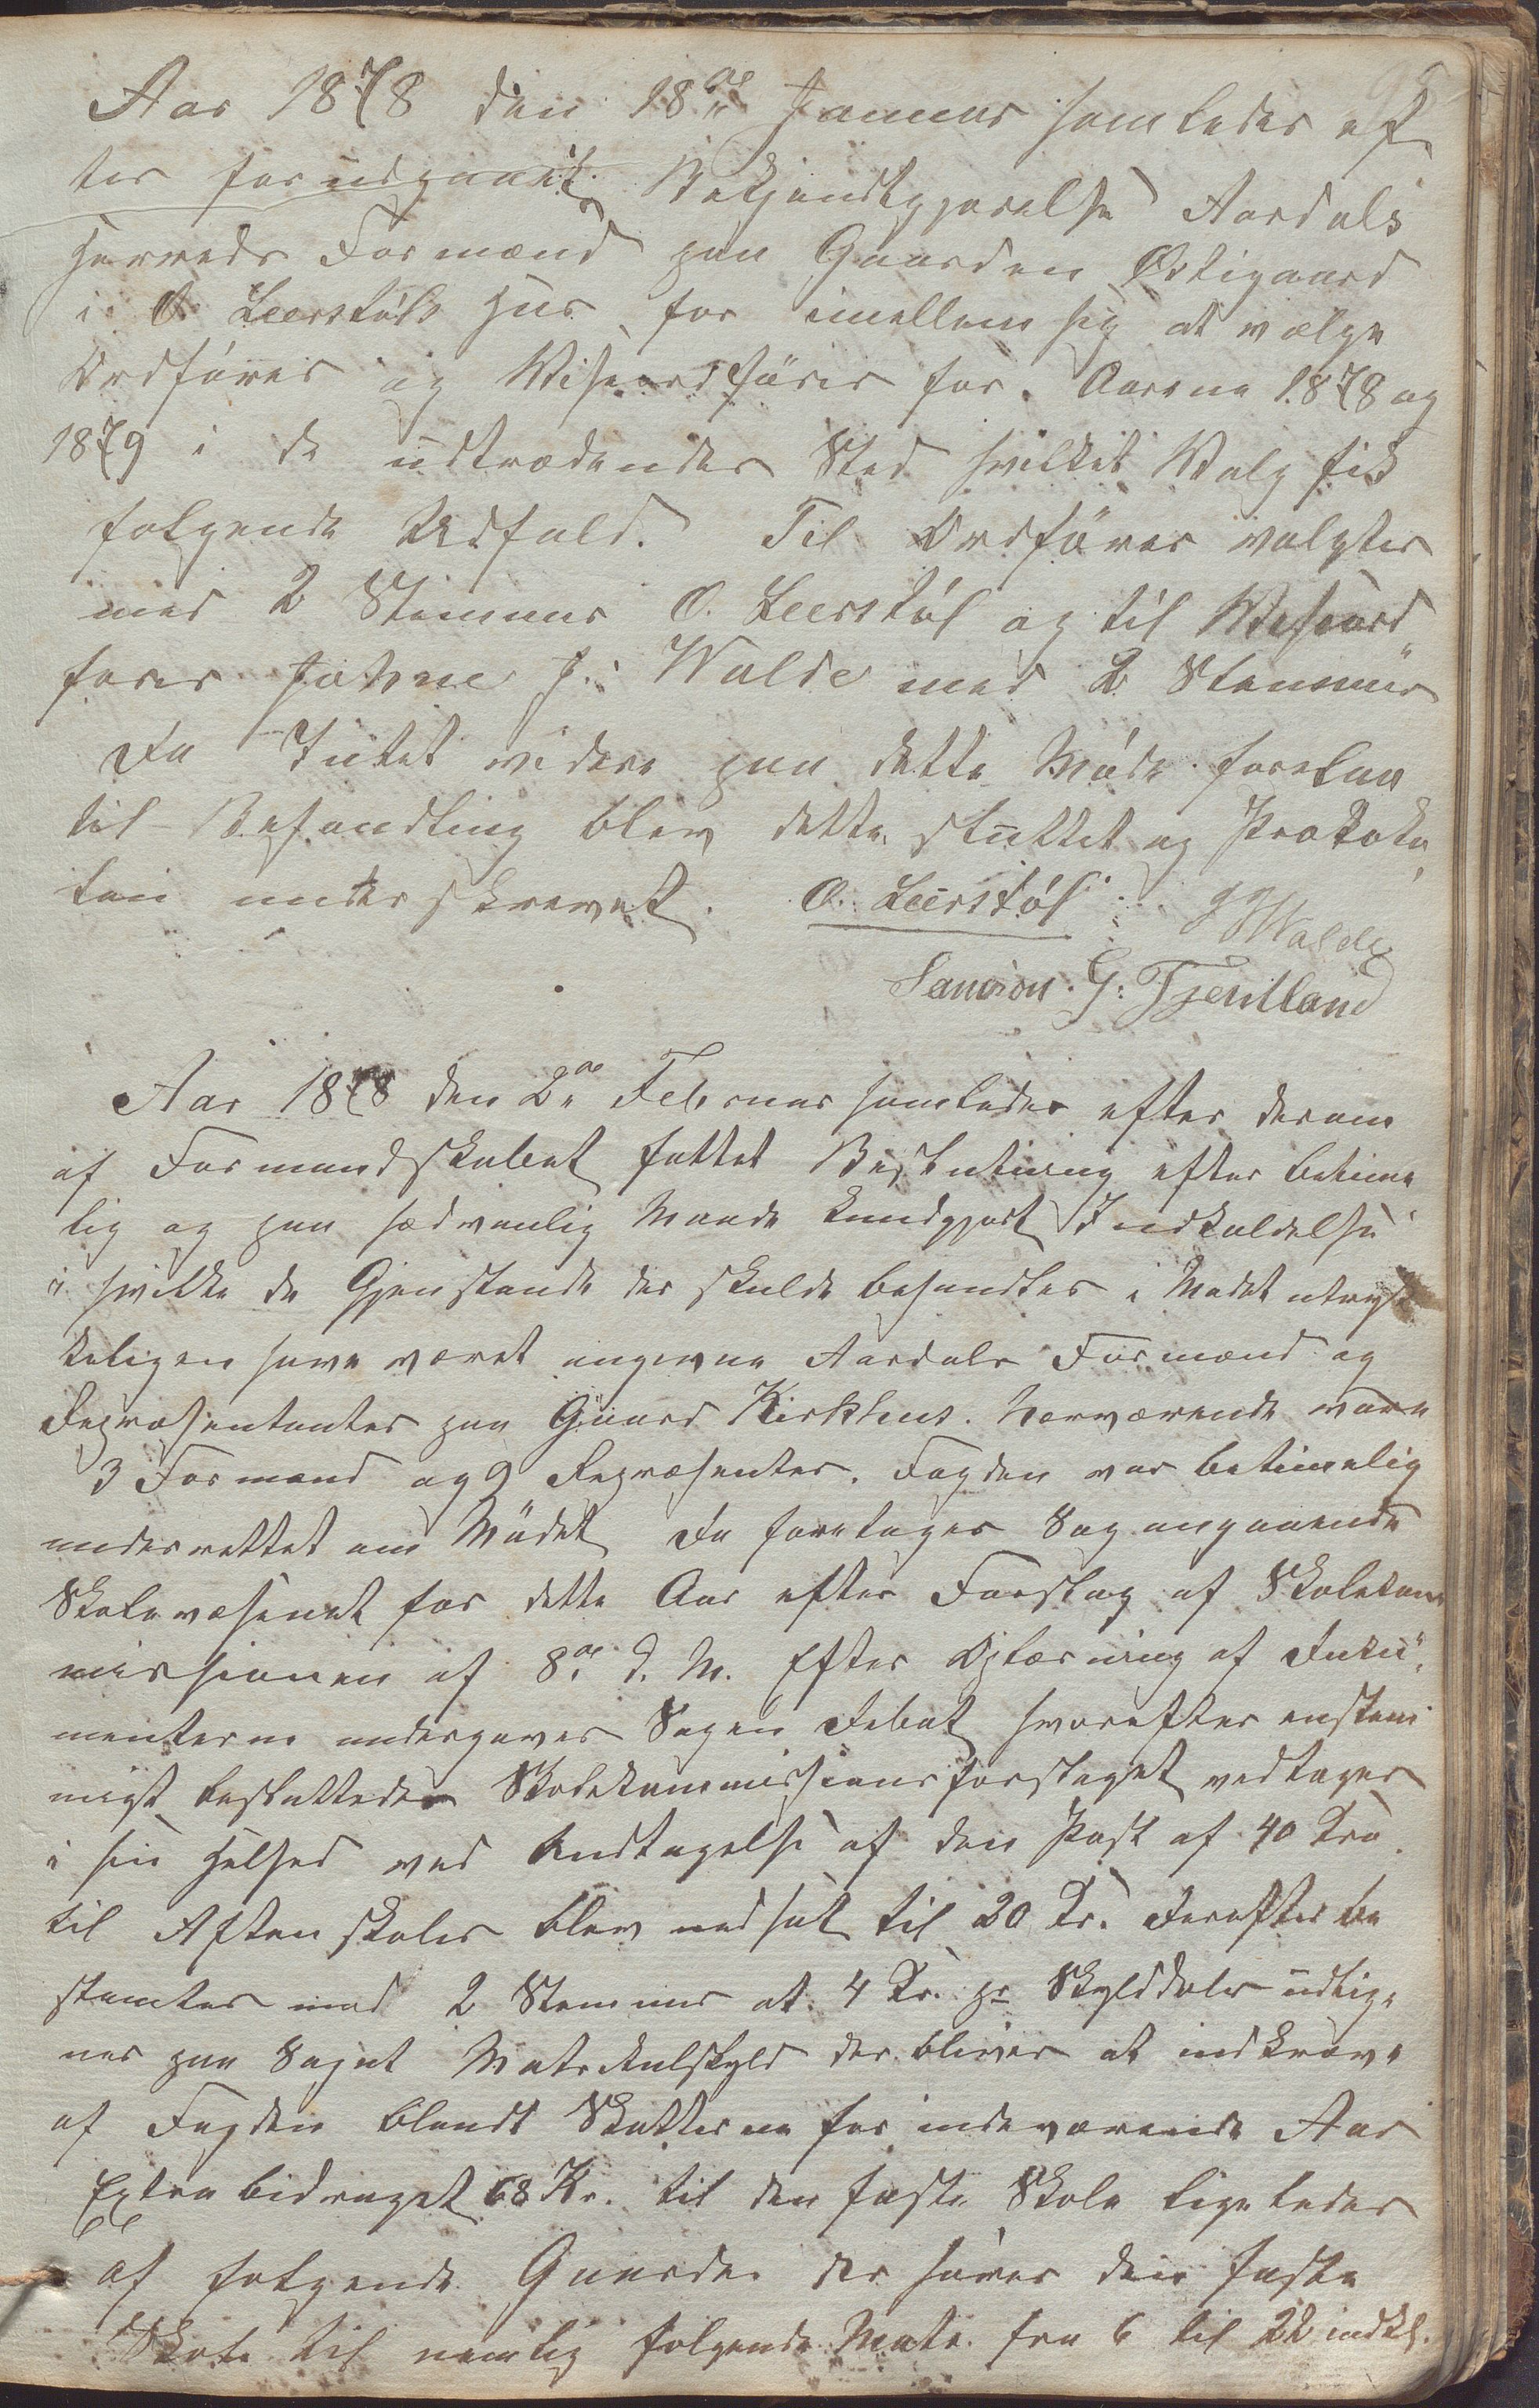 Aar 1878 den 18de Januar samledes ef-
ter forudgaaet Bekjendtgjørelse Aardals
Herreds Formænd paa Gaarden Østigaard
i O. Leerstøls Hus for imellem sig at vælge
Ordfører og Viseordfører for Aarene 1878 og
1879 i de udtrædendes Sted hvilket Valg fik
følgende Udfald. Til Ordfører valgtes
med 2 Stemmer O. Leerstøl og til Viseord-
fører Johne J. Valde med 2 Stemmer
Da Intet videre paa dette Møde forelaa
til Behandling blev dette sluttet og Protoko-
len underskrevet. O. Leerstøl JJ Walde
Samson G: Tjentland
Aar 1878 den 2de Februar samledes efter derom
af Formandskabet fattet Beslutning efter betime-
lig og paa sædvanlig Maade kundgjort Indkaldelse
i hvilke de Gjenstande der skulde behandles i Mødet utryk-
keligen have været angivne Aardals Formænd og
Repræsentanter paa Gaard Kirkhus. Nærværende vare
3 Formænd og 9 Repræsenter. Fogden var betimelig
underrettet om Mødet Da foretages Sag angaaende
Skolevæsenet for dette Aar efter Forslag af Skolekom-
missionen af 8de d. M. Efter Oplæsning af Doku-
menterne undergaves Sagen Debat hvorefter enstem-
migt besluttedes Skolekommissionsforslaget vedtages
i sin Helhed ved Undtagelse af den Post af 40 Kro.
til Aftenskoler blev nedsat til 20 Kr. Derefter be
stemtes med 2 Stemmer at 4 Kr. pr Skylddaler udlig-
nes paa Sognet Matrikulskyld der bliver at indkræve
af Fogden blandt Skatterne for indeværende Aar
Extra bidraget 68 Kr. til den faste Skole ligeledes
af følgende Gaarde der hører den faste
Skole til nemlig følgende Matr. fra 6 til 22 indkl.